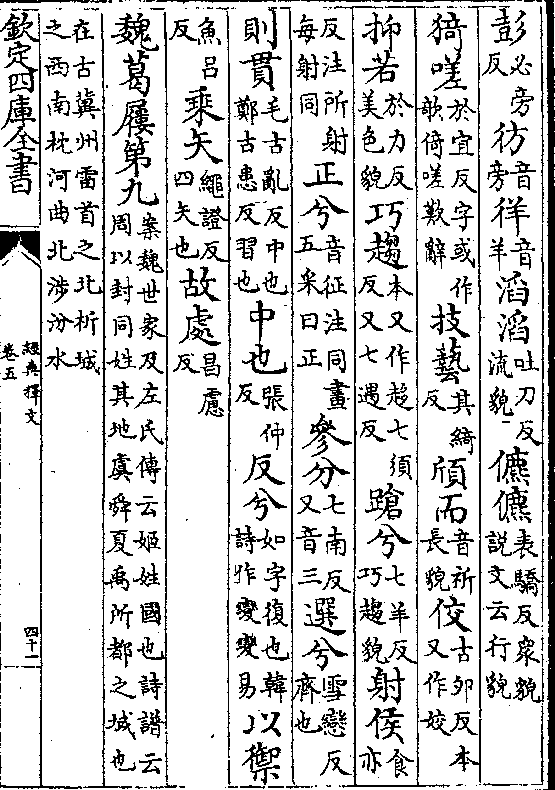 彭必旁反彷音旁徉音羊滔滔吐刀反流貌儦儦表驕反衆貌說文云行貌
猗嗟於宜反字或作欹倚嗟歎辭技藝其綺反頎而音祈長貌佼古卯反本又作姣
抑若於力反美色貌巧趨本又作趍七須反又七遇反蹌兮七羊反巧趨貌射侯食亦
反注所射每射同正兮音征注同畫五采曰正參分七南反又音三選兮雪戀反齊也
則貫毛古亂反中也鄭古患反習也中也張仲反反兮如字復也韓詩作變變易以禦
魚呂反乘矢繩證反四矢也故處昌慮反
魏葛屨第九案魏世家及左氏傳云姬姓國也詩譜云周以封同姓其地虞舜夏禹所都之域也
在古冀州雷首之北析城之西南枕河曲北涉汾水
欽定四庫全書
經典釋文
卷五
四十一